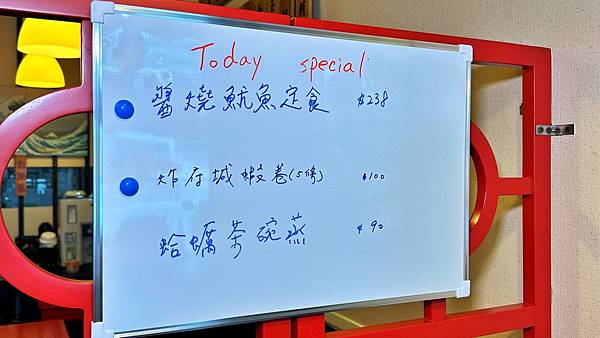 Today special
醬燒魷魚定食 $238
炸府城蝦卷(5條) $100
蛤蠣茶碗蒸 $90